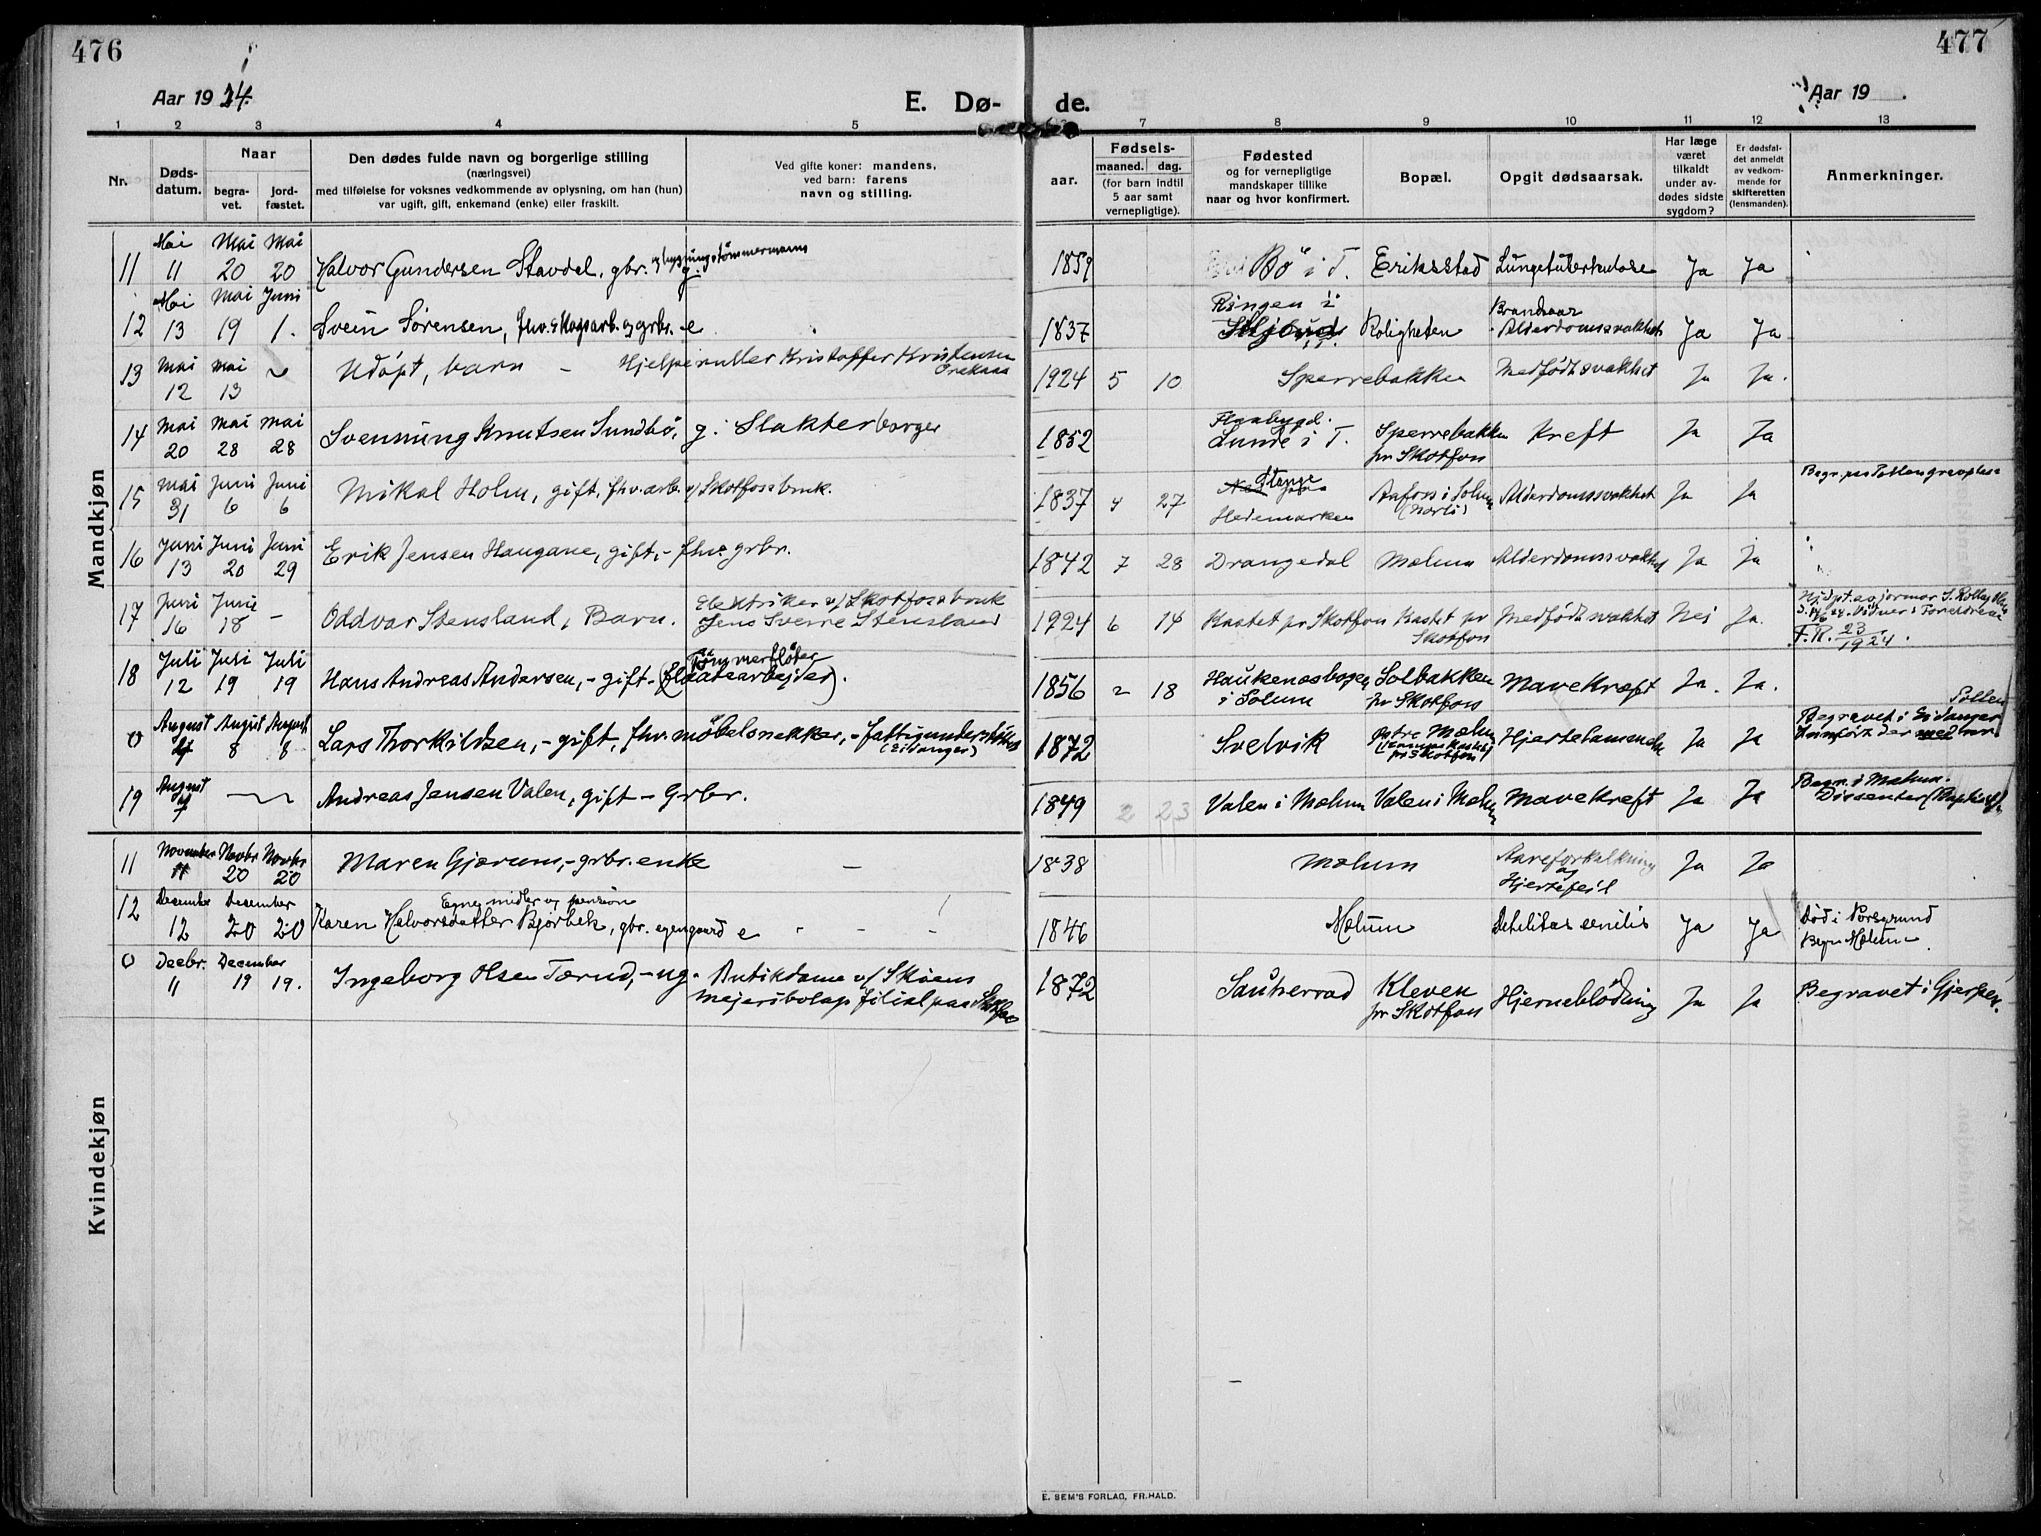 476
477
Aar 1924.
E. Dø- de.
Aar 19 .
1 2 3 4 5 6 7 8 9 10 11 12 13
Nr.
Døds-
datum.
Naar
begra-
vet.
jord-
fæstet.
Den dødes fulde navn og borgerlige stilling
(næringsvei)
med tilføielse for voksnes vedkommende av oplysning, om han (hun)
var ugift, gift, enkemand (enke) eller fraskilt.
Ved gifte koner: mandens,
ved barn: farens
navn og stilling.
Fødsels-
aar.
maaned. dag.
(for barn indtil
5 aar samt
vernepligtige).
Fødested
og for vernepligtige
mandskaper tillike
naar og hvor konfirmert.
Bopæl.
Opgit dødsaarsak.
Har læge
været
tilkaldt
under av-
dødes sidste
sygdom?
Er dødsfal-
det anmeldt
av vedkom-
mende for
skifteretten
(lensmanden).
Anmerkninger.
Mandkjøn
11 Mai 11 Mai 20 Mai 20 Halvor Gundersen Stavdal, gbr. og bygningstømmermann g. 1859 Bö i T. Eriksstad Lungetuberkulose Ja Ja
12 Mai 13 Mai 19 Juni 1. Svein Sørensen, fhv. skogsarb. og grbr. - e 1837 Ringen i Roligheten Alderdomssvakhet Ja Ja
13 Mai 12 Mai 13 ~ Udøpt, barn - Hjelperuller Kristoffer Kristensen 1924 5 10 Sperrebakken Medfødt svakhet Ja Ja.
14 Mai 20 Mai 28 Mai 28 Svennung Knutsen Sundbö, g. Slakter borger 1852 Flaabygd. Lunde i T. Sperrebakken pr Skotfoss Kreft Ja Ja
15 Mai 31 Juni 6 Juni 6 Mikal Holm, gift, fhv. arb. v/ Skotfoss bruk. 1837 4 27 Stange Hedemarken Aafoss i Solum Alderdomssvakhet Ja Ja
16 Juni 13 Juni 20 Juni 29 Erik Jensen Haugane, gift, - fhv. grbr. 1842 7 28 Drangedal Mælum Alderdomssvakhet Ja Ja
17 Juni 16 Juni 18 - Oddvar Stensland, Barn. Elektriker v/ Skotfoss bruk Jens Sverre Stensland 1924 6 14 Kastet pr Skotfoss Kastet pr Skotfoss Medfødt svakhet Nei Ja. F.R. 23/1924.
18 Juli 12 Juli 19 Juli 19 Hans Andreas Andersen, - gift - Tømmerfløter (flaatearbejder). 1856 2 18 Haukenesbogen i Solum Solbakken pr Skotfoss Mavekræft Ja. Ja.
0 August August 8 August 8 Lars Thorkildsen, - gift, fhv. møbelsnekker, - fattigunderstøttet (Eidanger) 1872 Svelvik Østre Mælum pr Skotfoss Hjertelammelse Ja Ja Begravet i Eidanger
19 August Andreas Jensen Valen, gift - Grbr. 1849 2 23 Valen i Mælum Valen i Mælum Mavekreft Ja Ja Begr. i Mælum. Dissenter
Kvindekjøn
11 November 11 Novbr 20 Novbr 20 Maren Gjærum, - grbr. enke - 1838 Mælum Aareforkalkning og Hjertefeil Ja Ja
12 December 12 December 20 20 Karen Halvorsdatter Bjørbek, gbr. egengaard e Egne midler og pension - - - 1846 Mælum Debilitas senilis Ja Ja Død i Porsgrund Begr. Mælum.
0 Decbr. 11 December 19 19. Ingeborg Olsen Tærud, - ug. Butikdame v/ Skiens mejeribolags filial paa Skotfos 1872 Sauherrad Kleven pr Skotfoss Hjerneblødning Ja Ja Begravet i Gjerpen.
E. SEM'S FORLAG, FR.HALD.